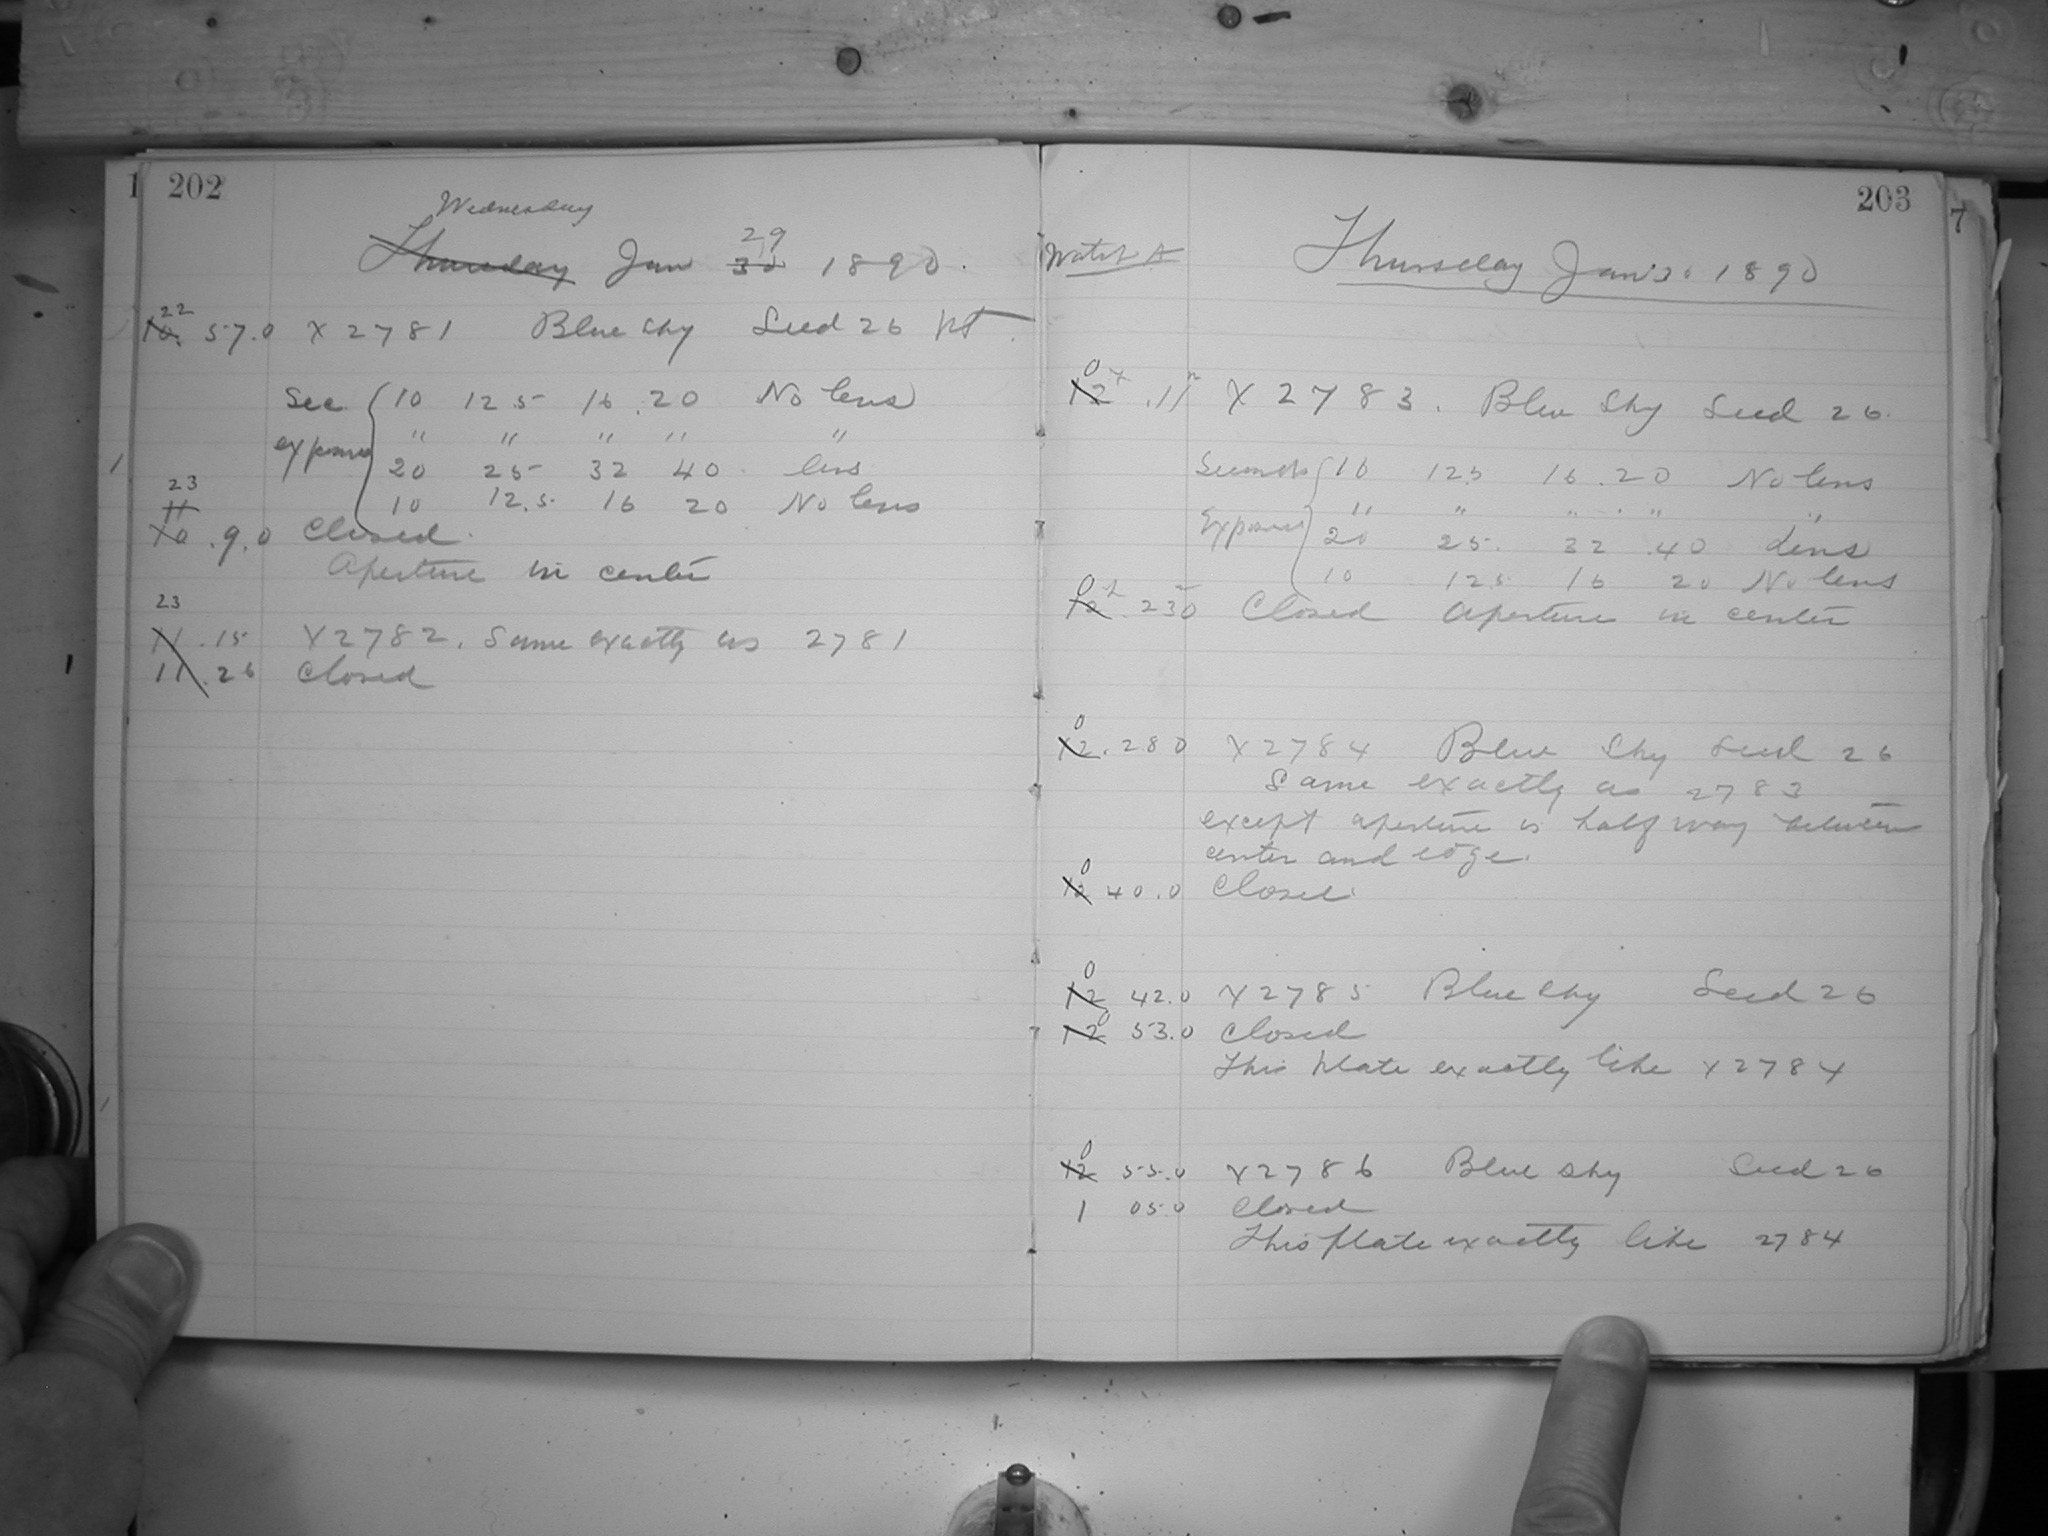 1 202
Wednesday
Thursday Jan 30 29 1890.
22
10. 57.0 X 2781 Blue Sky Seed 26
Sec. 10 12.5 16 20 No lens
exposure " " " " "
20 25 32 40 lens
23
10 12.5 16 20 No lens
11
10 .9.0 Closed.
Aperture in center
23
11 .15 X2782. Same exactly as 2781
11 .26 Closed
203
7
Watch A Thursday Jan 30 1890
0
12 .11 X 2783. Blue Sky Seed 26.
Seconds 10 12.5 16 .20 No lens
Exposure " " " " "
20 25. 32 .40 Lens
10 12.5 16 20 No lens
0
12. 23 0 Closed Aperture in center
0
12. 28 0 X2784 Blue Sky Seed 26
Same exactly as 2783
except aperture is half way between
center and edge.
0
12 40.0 Closed.
0
12 42.0 X2785 Blue Sky Seed 26
0
12 53.0 Closed
This Plate exactly like X2784
0
12 55.0 X2786 Blue Sky Seed 26
1 05.0 Closed
This plate exactly like 2784